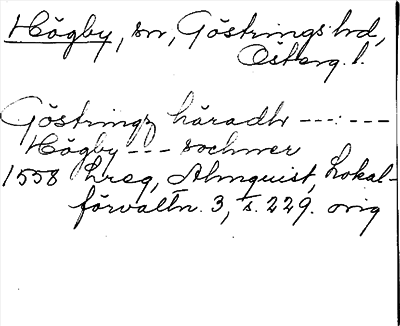 Högby, sn, Göstrings hd,
Österg. l.
Göstringz häradh ---:---
Högby --- sochner
1558 hreg, Almquist, Lokal-
förvaltn. 3, s. 229. orig